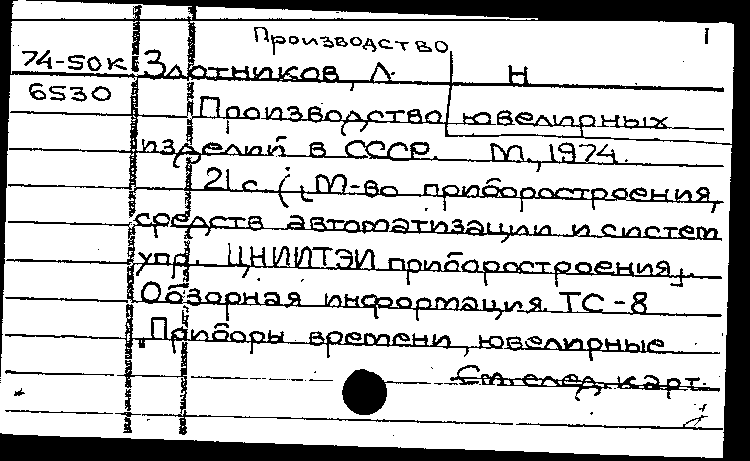 Производство I
74-50К Злотников, Л Н
6530
Производство ювелирных
изделий в СССР. М., 1974.
21с. (М-во приборостроения,
средств автоматизации и систем
упр. ЦНИИТЭИ приборостроения).
Обзорная информация. ТС-8
"Приборы времени, ювелирные
См. след. карт.